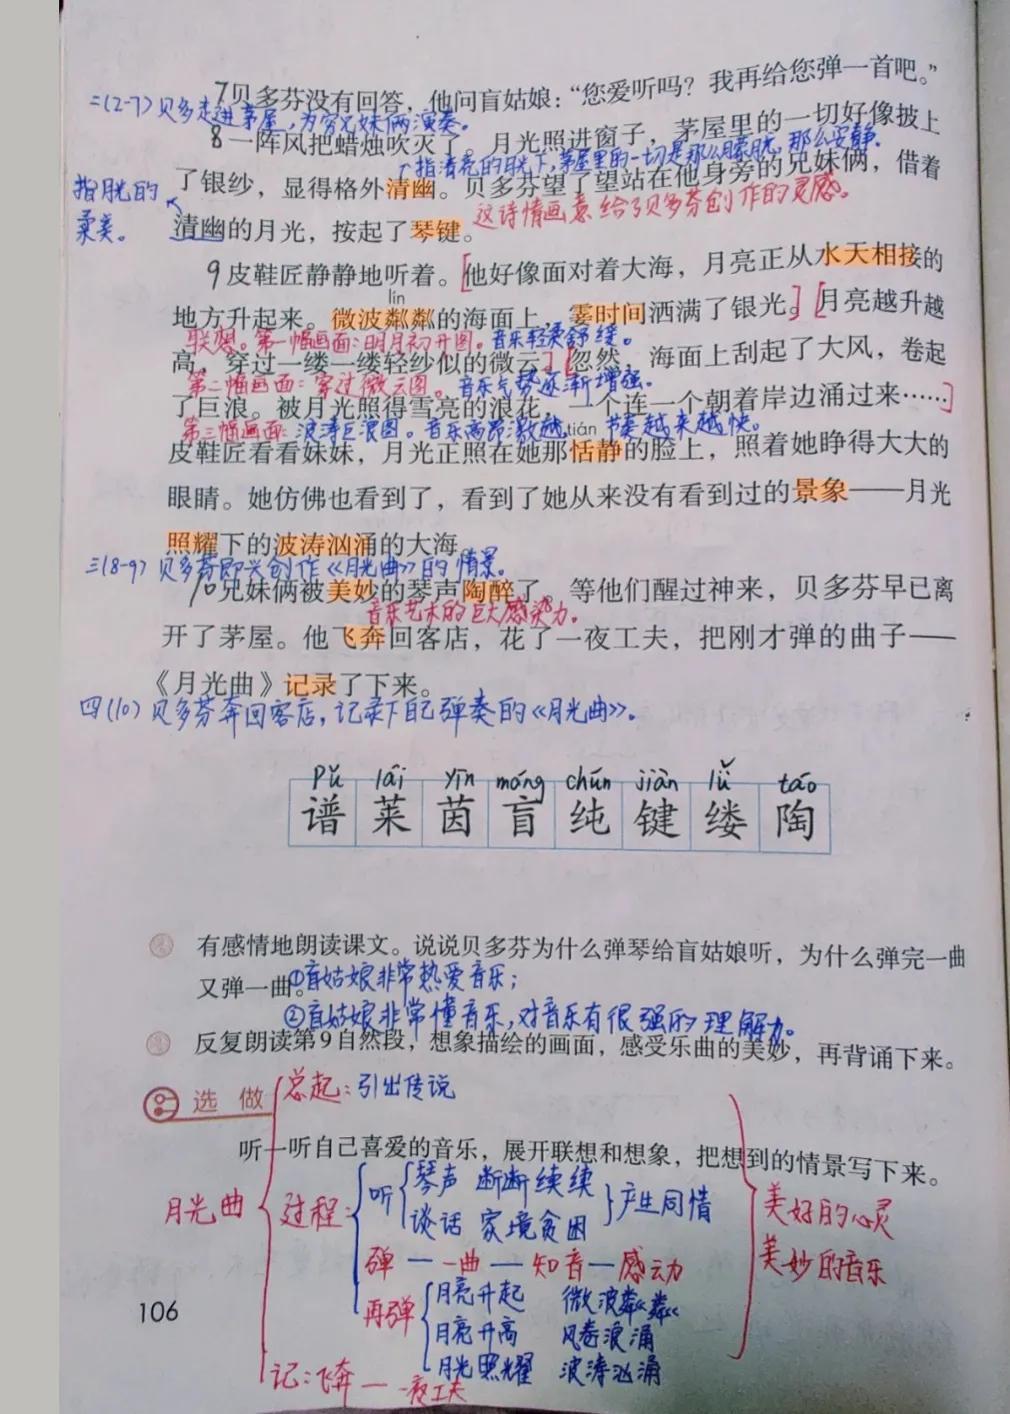 7贝多芬没有回答，他问盲姑娘：“您爱听吗？我再给您弹一首吧。”
二(2-7)贝多走进茅屋，为穷兄妹俩演奏。
8一阵风把蜡烛吹灭了。月光照进窗子，茅屋里的一切好像披上
指清亮的月光下，茅屋里的一切是那么朦胧，那么安静。
了银纱，显得格外清幽。贝多芬望了望站在他身旁的兄妹俩，借着
指月光的
柔美。
这诗情画意给了贝多芬创作的灵感。
清幽的月光，按起了琴键。
9皮鞋匠静静地听着。[他好像面对着大海，月亮正从水天相接的
lín
地方升起来。微波粼粼的海面上，霎时间洒满了银光。][月亮越升越
联想。第一幅画面：明月初升图。音乐轻柔舒缓。
高，穿过一缕一缕轻纱似的微云。][忽然，海面上刮起了大风，卷起
第二幅画面：穿过微云图。音乐气势逐渐增强。
了巨浪。被月光照得雪亮的浪花，一个连一个朝着岸边涌过来……]
第三幅画面：波涛巨浪图。音乐高昂激越，节奏越来越快。
tián
皮鞋匠看看妹妹，月光正照在她那恬静的脸上，照着她睁得大大的
眼睛。她仿佛也看到了，看到了她从来没有看到过的景象——月光
照耀下的波涛汹涌的大海。
三(8-9)贝多芬即兴创作《月光曲》的情景。
10兄妹俩被美妙的琴声陶醉了。等他们醒过神来，贝多芬早已离
音乐艺术的巨大感染力。
开了茅屋。他飞奔回客店，花了一夜工夫，把刚才弹的曲子——
《月光曲》记录了下来。
四(10)贝多芬奔回客店，记录下自己弹奏的《月光曲》。
pǔ lái yīn máng chún jiàn lǚ táo
谱 莱 茵 盲 纯 键 缕 陶
有感情地朗读课文。说说贝多芬为什么弹琴给盲姑娘听，为什么弹完一曲
又弹一曲。①盲姑娘非常热爱音乐；
②盲姑娘非常懂音乐，对音乐有很强的理解力。
反复朗读第9自然段，想象描绘的画面，感受乐曲的美妙，再背诵下来。
总起：引出传说
选做
听一听自己喜爱的音乐，展开联想和想象，把想到的情景写下来。
月光曲
过程：
听
琴声 断断续续
谈话 家境贫困
产生同情
弹 — 一曲 — 知音 — 感动
再弹
月亮升起 微波粼粼
月亮升高 风卷浪涌
月光照耀 波涛汹涌
记：飞奔 — 一夜工夫
美好的心灵
美妙的音乐
106